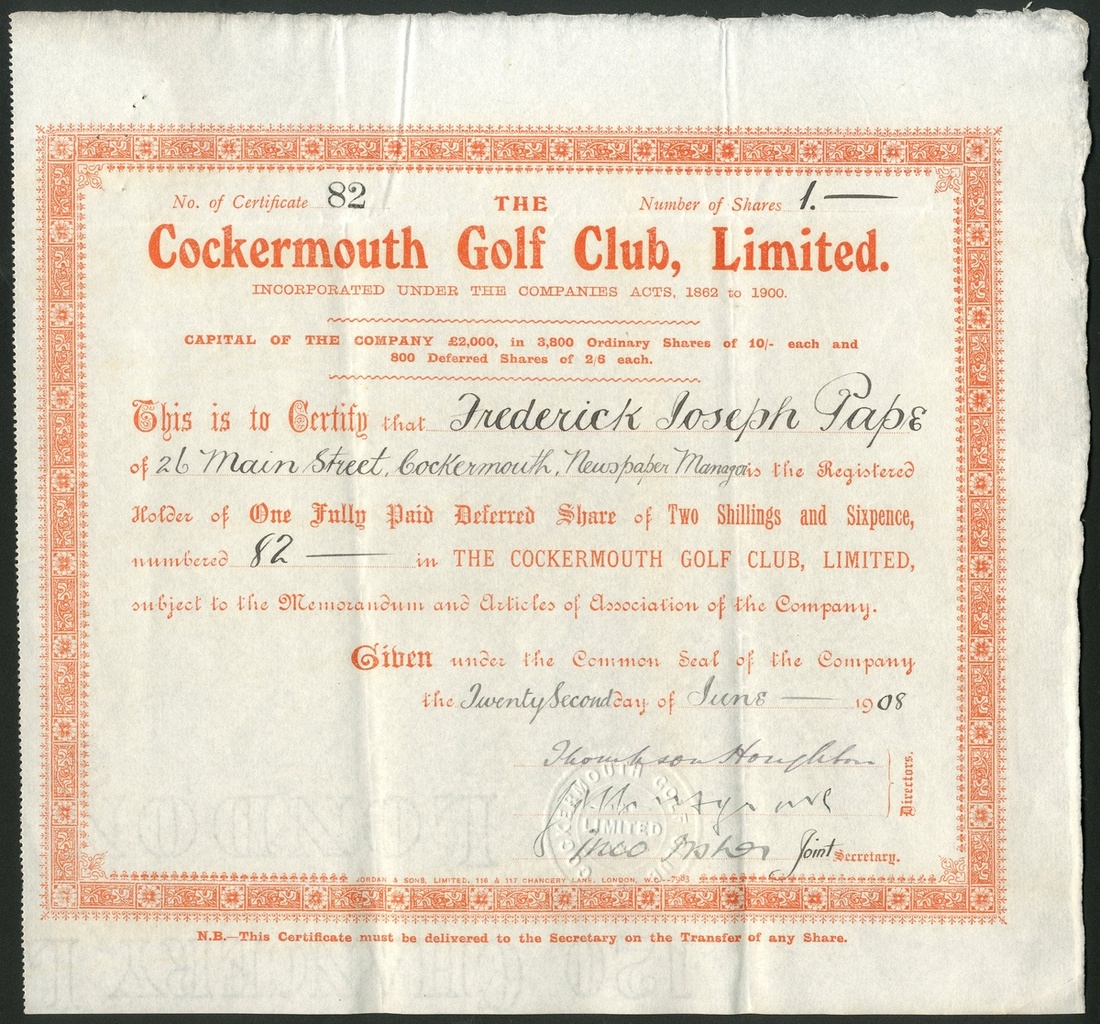 No. of Certificate 82 THE Number of Shares 1.—
Cockermouth Golf Club, Limited.
INCORPORATED UNDER THE COMPANIES ACTS, 1862 to 1900.
CAPITAL OF THE COMPANY £2,000, in 3,800 Ordinary Shares of 10/- each and
800 Deferred Shares of 2/6 each.
This is to Certify that Frederick Joseph Pape
of 26 Main Street, Cockermouth, Newspaper Manager is the Registered
Holder of One Fully Paid Deferred Share of Two Shillings and Sixpence,
numbered 82 — in THE COCKERMOUTH GOLF CLUB, LIMITED,
subject to the Memorandum and Articles of Association of the Company.
Given under the Common Seal of the Company
the Twenty Second day of June — 1908
Thompson Houghton
Directors.
COCKERMOUTH GOLF
LIMITED
Joint Secretary.
JORDAN & SONS, LIMITED, 116 & 117 CHANCERY LANE, LONDON, W.C.
N.B.—This Certificate must be delivered to the Secretary on the Transfer of any Share.